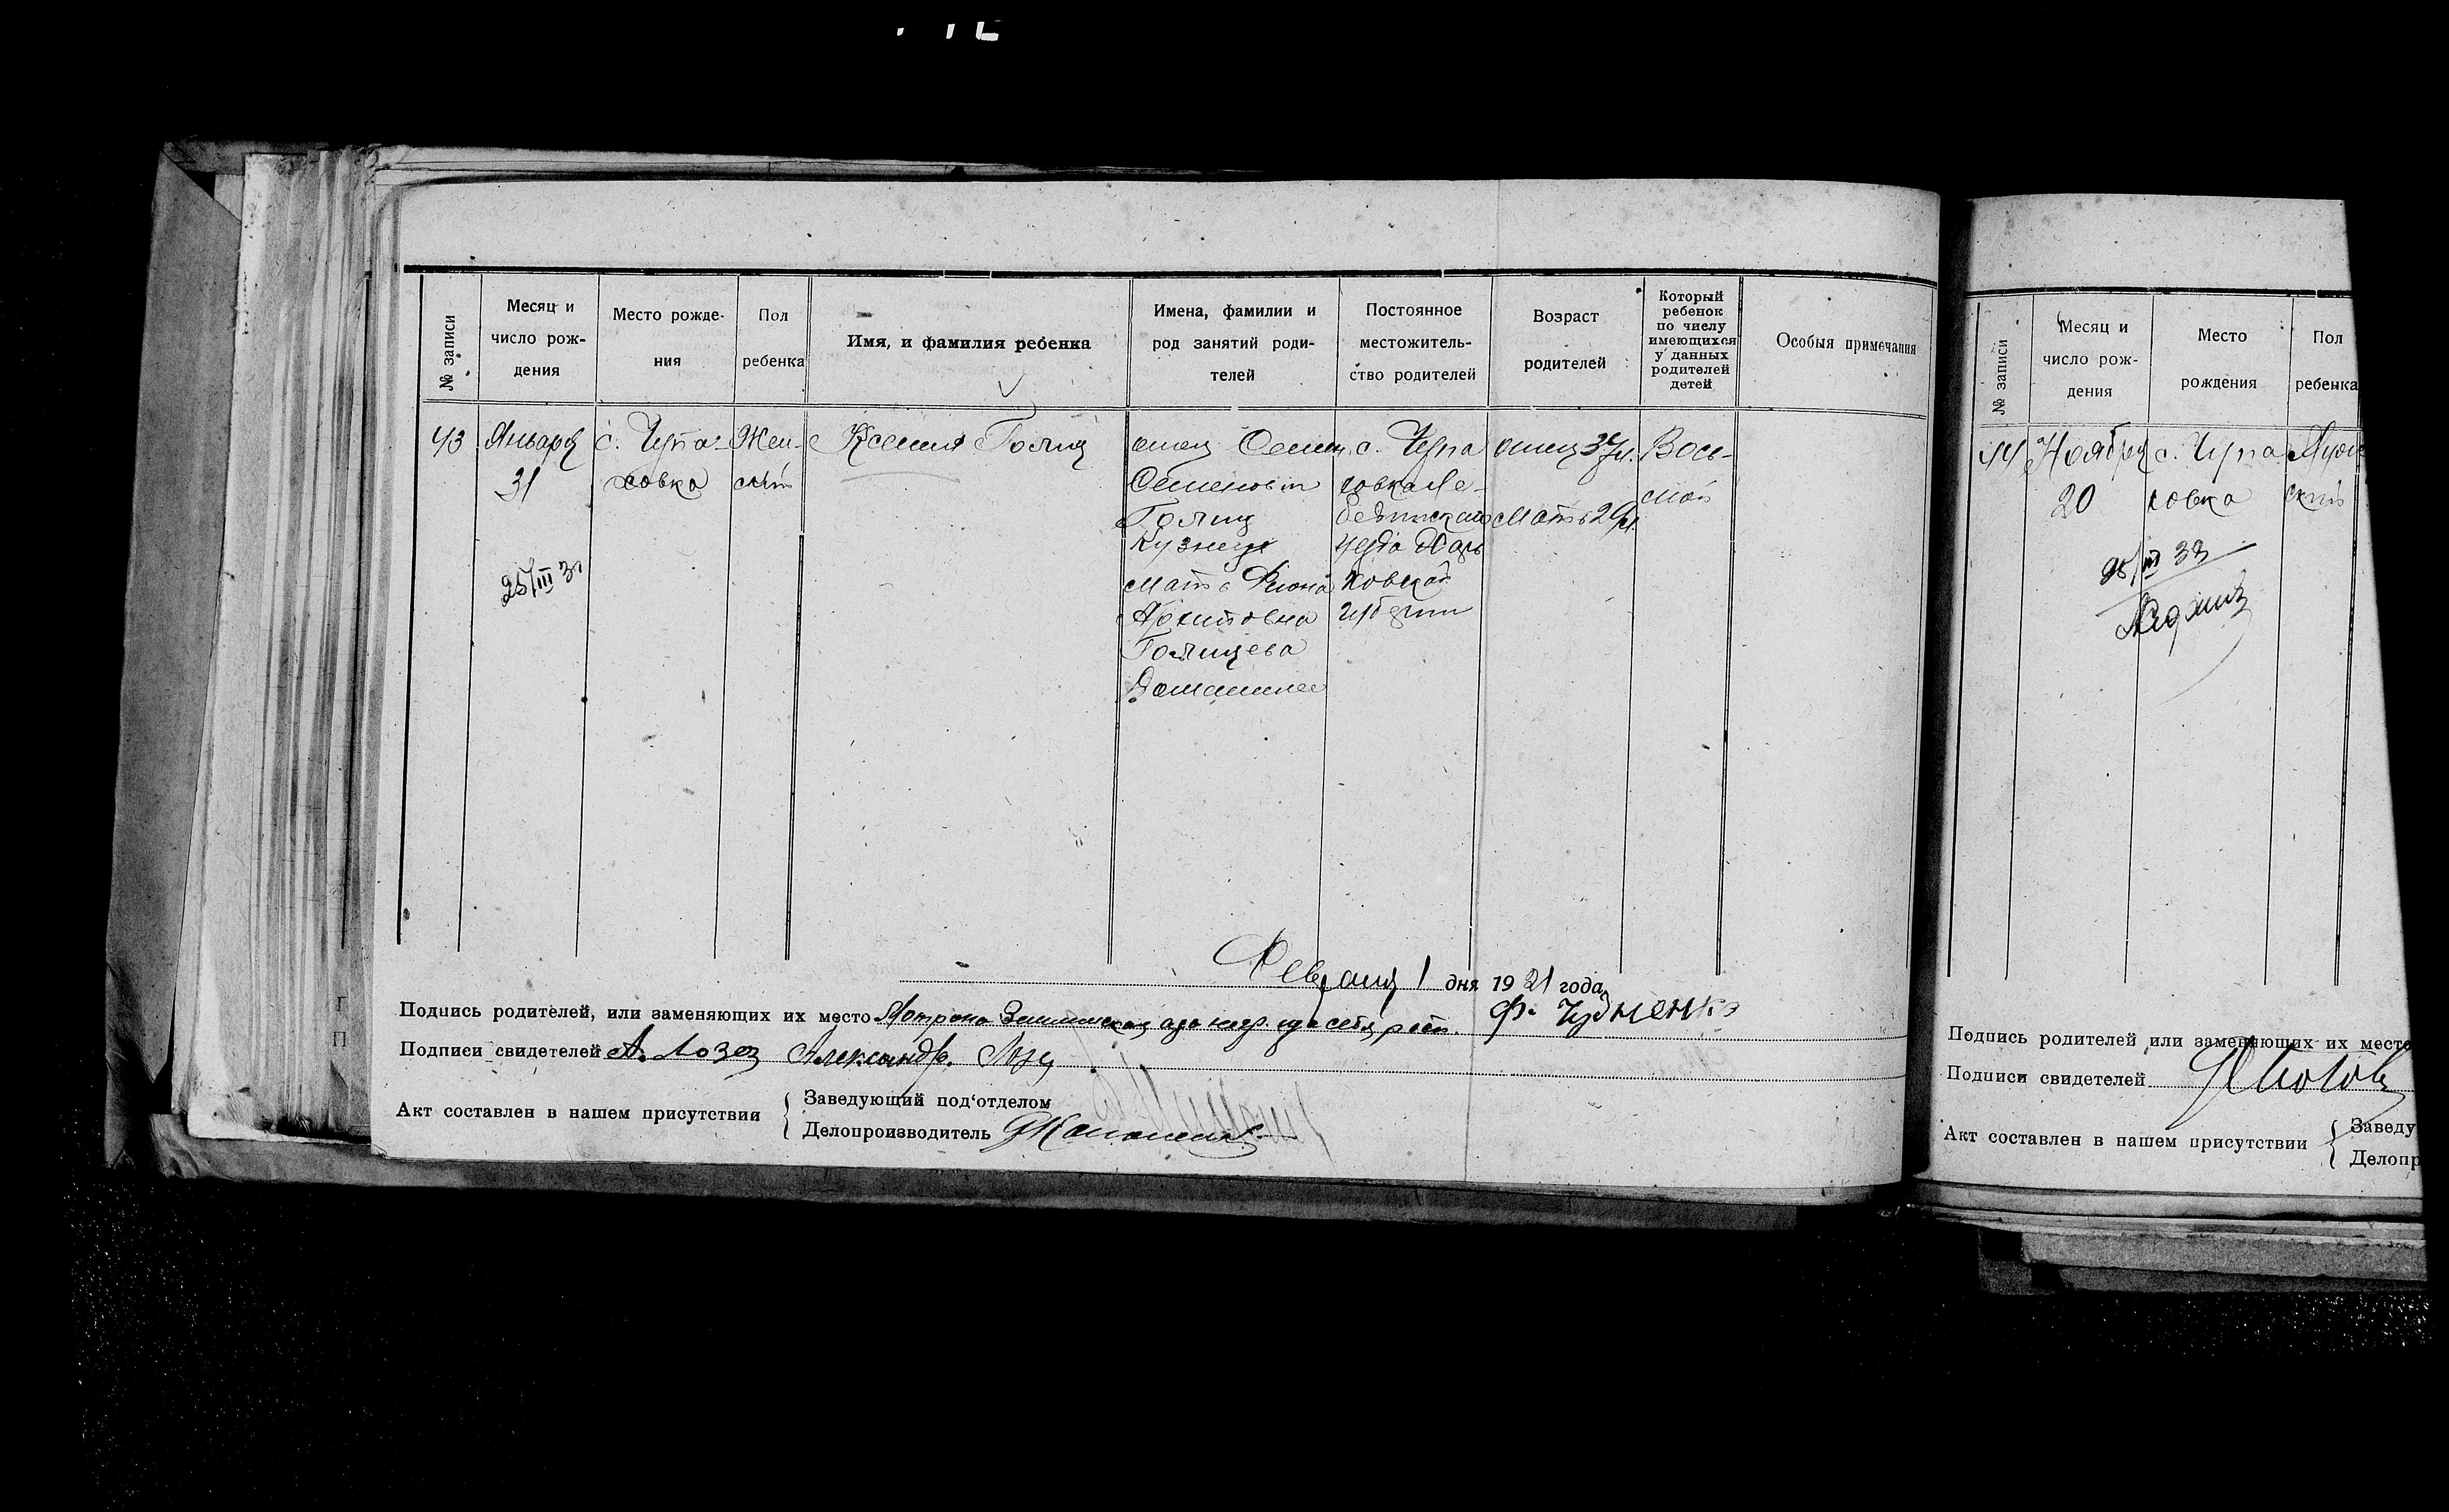 № записи
Месяц и число рождения
Место рожде-
ния
Пол
ребенка
Имя, и фамилия ребенка
Имена, фамилии и
род занятий роди-
телей
Постоянное
местожитель-
ство родителей
Возраст
родителей
Который
ребенок
по числу
имеющихся
у данных
родителей
детей
Особыя примечания
43
Января
31
с. Чупа-
ховка
Жен-
ский
Ксения Голиц
отец Семен
Семенович
Голиц
Кузнец
мать
Архиповна
Голицева
Домашнее
с. Чупа
ховка Ле-
бединскаго
уезда Харь
ковской
губернии
отец
мать
Вось-
мой
25/III 31
Февраля 1 дня 1921 года
Подпись родителей, или заменяющих их место
Ф. Чудненко
Подписи свидетелей А. Лозов Александр.
Акт составлен в нашем присутствии
Заведующий под‘отделом
Делопроизводитель
№ записи
Месяц и
число рож-
дения
Место
рождения
Пол
ребенка
44
Ноября
20
с. Чупа
ховка
Муж
ский
33
Подпись родителей или заменяющих их место
Подписи свидетелей
Акт составлен в нашем присутствии
Заведу
Делопр